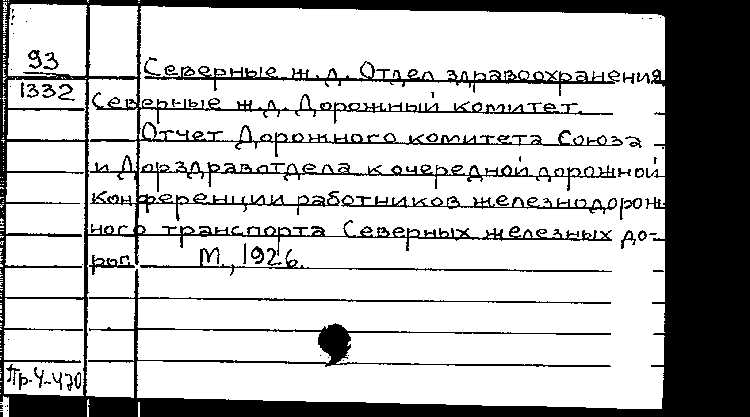 93
1332
Северные ж.д. Отдел здравоохранения
Северные ж.д. Дорожный комитет.
Отчет Дорожного комитета Союза
и Дорздравотдела к очередной дорожной
конференции работников железнодорож
ного транспорта Северных железных до-
рог. М., 1926.
Пр-4-470